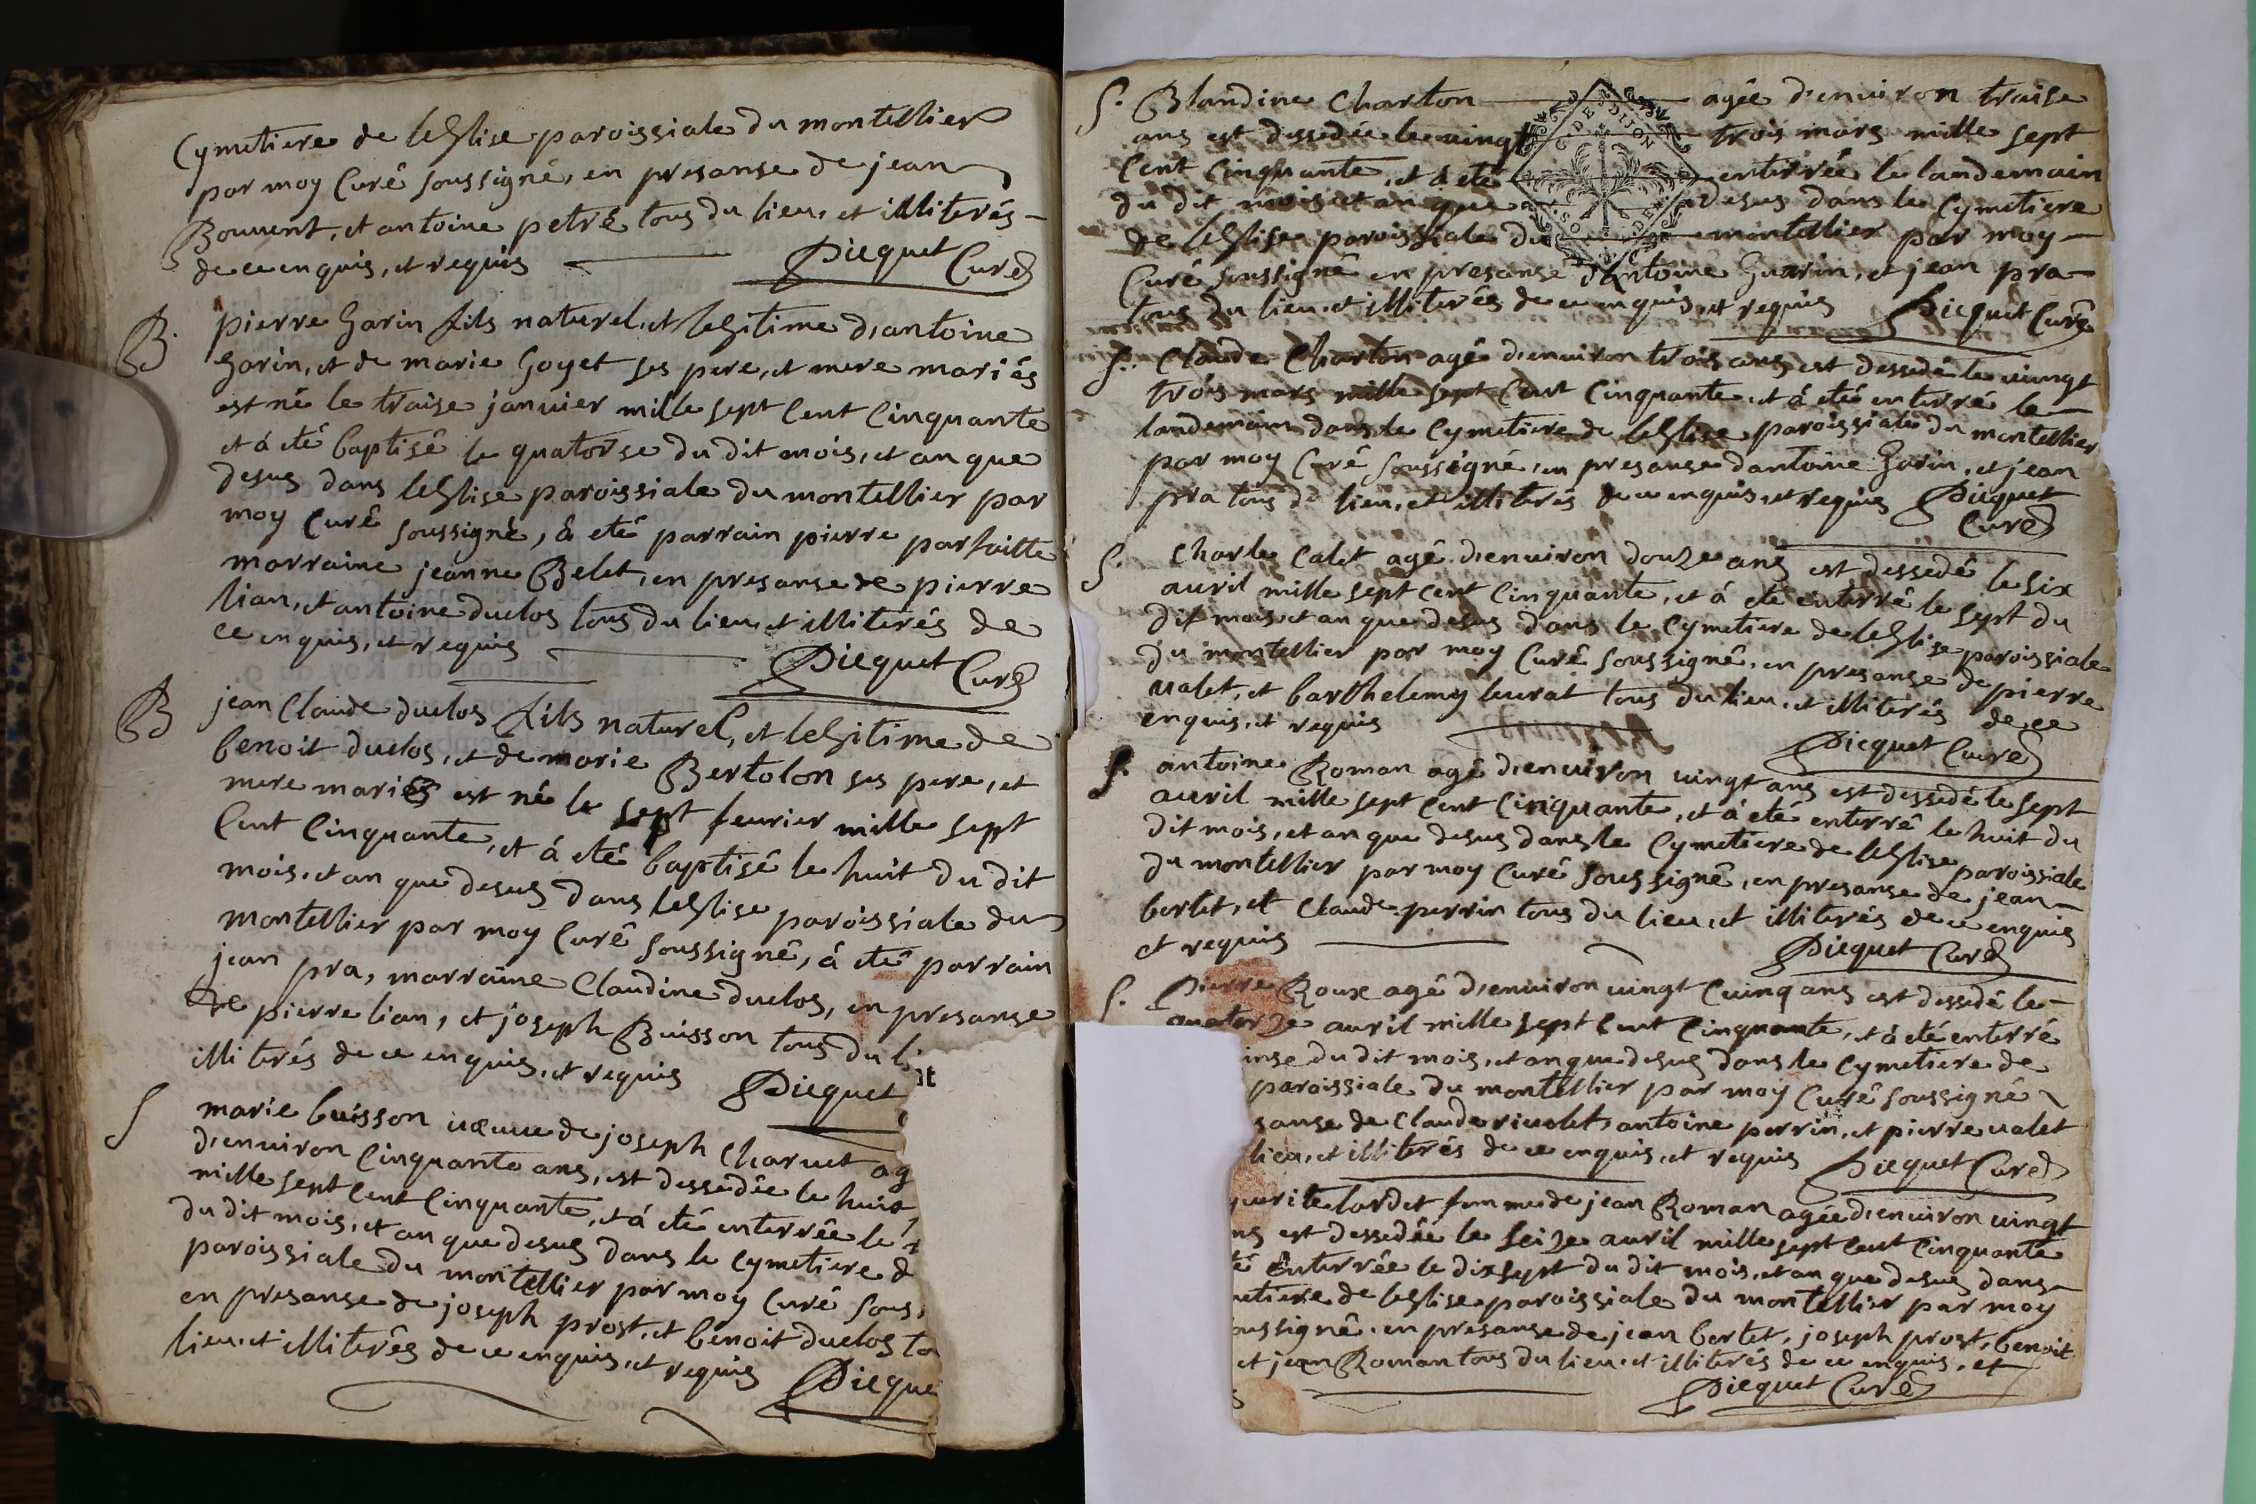 Cymetiere de leglise paroissiale du montellier
par moy Curé soussigné, en presanse de jean
Bouvent, et antoine petré tous du lieu, et illiterés
de ce enquis, et requis Picquet Curé
B. pierre Garin fils naturel, et legitime d'antoine
Garin, et de marie Goyet ses pere, et mere mariés
est né le traise janvier mille sept Cent Cinquante
et á eté baptisé le quatorse du dit mois, et an que
desus dans leglise paroissiale du montellier par
moy Curé soussigné, á eté parrain pierre parfaitte
marraine jeanne Belet, en presanse de pierre
lian, et antoine duclos tous du lieu, et illiterés de
ce enquis, et requis Picquet Curé
B jean Claude duclos fils naturel, et legitime de
benoit duclos, et de marie Bertolon ses pere, et
mere mariés est né le sept fevrier mille sept
Cent Cinquante, et á eté baptisé le huit du dit
mois, et an que desus dans leglise paroissiale du
montellier par moy Curé soussigné, á eté parrain
jean pra, marraine Claudine duclos, en presanse
de pierre lian, et joseph Buisson tous du li
illiterés de ce enquis, et requis Picquet
S marie buisson vœuve de joseph Charvet ag
d'environ Cinquante ans, est dessedée le huit
mille sept Cent Cinquante, et á eté enterrée le
du dit mois, et an que desus dans le Cymetiere d
paroissiale du montellier par moy Curé sous
en presanse de joseph prost, et benoit duclos to
lieu, et illiterés de ce enquis, et requis Picque
S. Blandine Charton agée d'environ traise
ans est dessedée le vingt trois mars mille sept
Cent Cinquante, et á eté enterrée le landemain
du dit mois et an que desus dans le Cymetiere
de leglise paroissiale du montellier par moy
Curé soussigné en presanse d'antoine Guarin, et jean pra
tous du lieu, et illiterés de ce enquis, et requis Picquet Curé
S. Claude Charton agé d'environ trois ans est dessedé le vingt
trois mars mille sept Cent Cinquante, et á eté enterré le
landemain dans le Cymetiere de leglise paroissiale du montellier
par moy Curé soussigné, en presanse d'antoine Garin, et jean
pra tous du lieu, et illiterés de ce enquis, et requis Picquet
Curé
S. Charle Calet agé d'environ douze ans est dessedé le six
avril mille sept Cent Cinquante, et á eté enterré le sept du
dit mois, et an que desus dans le Cymetiere de leglise paroissiale
du montellier par moy Curé soussigné, en presanse de pierre
valet, et barthelemy leurat tous du lieu, et illiterés de ce
enquis, et requis Picquet Curé
S. antoine Roman agé d'environ vingt ans est dessedé le sept
avril mille sept Cent Cinquante, et á eté enterré le huit du
dit mois, et an que desus dans le Cymetiere de leglise paroissiale
du montellier par moy Curé soussigné, en presanse de jean
bertet, et Claude perrin tous du lieu, et illiterés de ce enquis
et requis Picquet Curé
S. Pierre Roux agé d'environ vingt Cuinq ans est dessedé le
quatorze avril mille sept Cent Cinquante, et á eté enterré
inse du dit mois, et an que desus dans le Cymetiere de
paroissiale du montellier par moy Curé soussigné
sanse de Claude rivolet, antoine perrin, et pierre valet
lieu, et illiterés de ce enquis, et requis Picquet Curé
guerite lardet femme de jean Roman agée d'environ vingt
ns est dessedée le seize avril mille sept Cent Cinquante
té enterrée le dix sept du dit mois, et an que desus dans
metiere de leglise paroissiale du montellier par moy
oussigné, en presanse de jean bertet, joseph prost, benoit
et jean Roman tous du lieu, et illiterés de ce enquis, et
s Picquet Curé